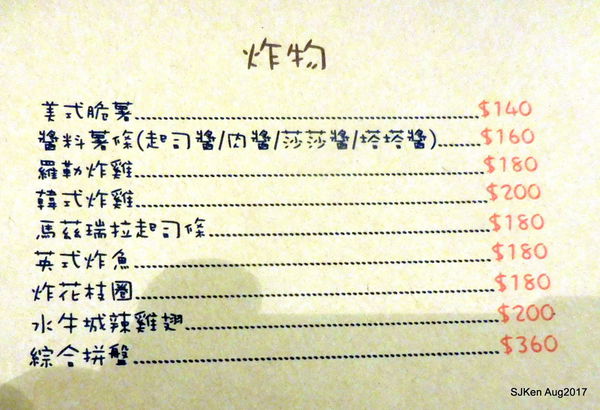 炸物
美式脆薯 $140
醬料薯條(起司醬/肉醬/莎莎醬/塔塔醬) $160
羅勒炸雞 $180
韓式炸雞 $200
馬茲瑞拉起司條 $180
英式炸魚 $180
炸花枝圈 $180
水牛城辣雞翅 $200
綜合拼盤 $360
SJKen Aug2017